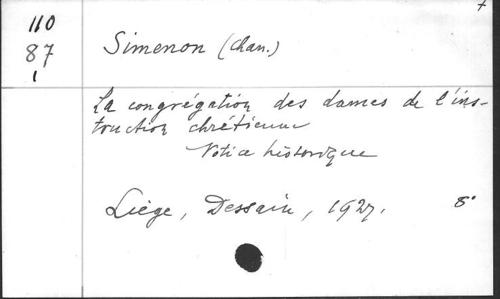 +
110
87
1
Simenon (Chan.)
La congrégation des dames de l'ins-
truction chrétienne
Notice historique
Liège, Dessain, 1927. 8°